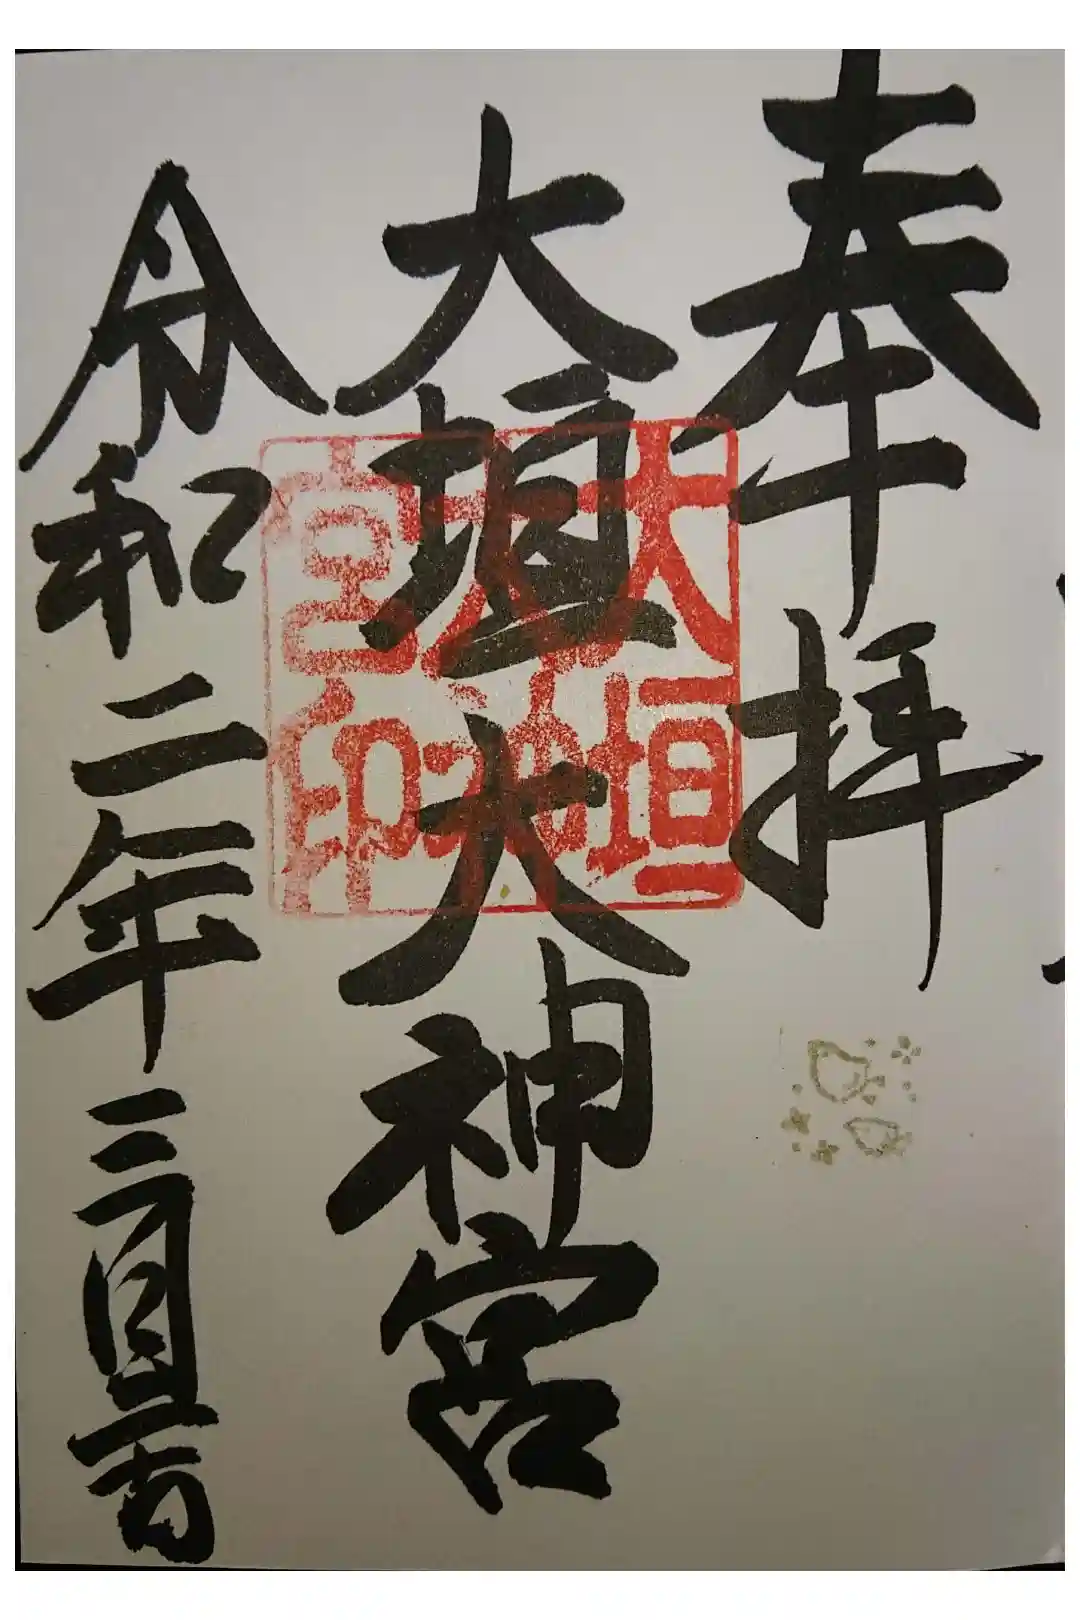 奉拝
大垣大神宮
令和二年三月三日
大垣
大神
宮印